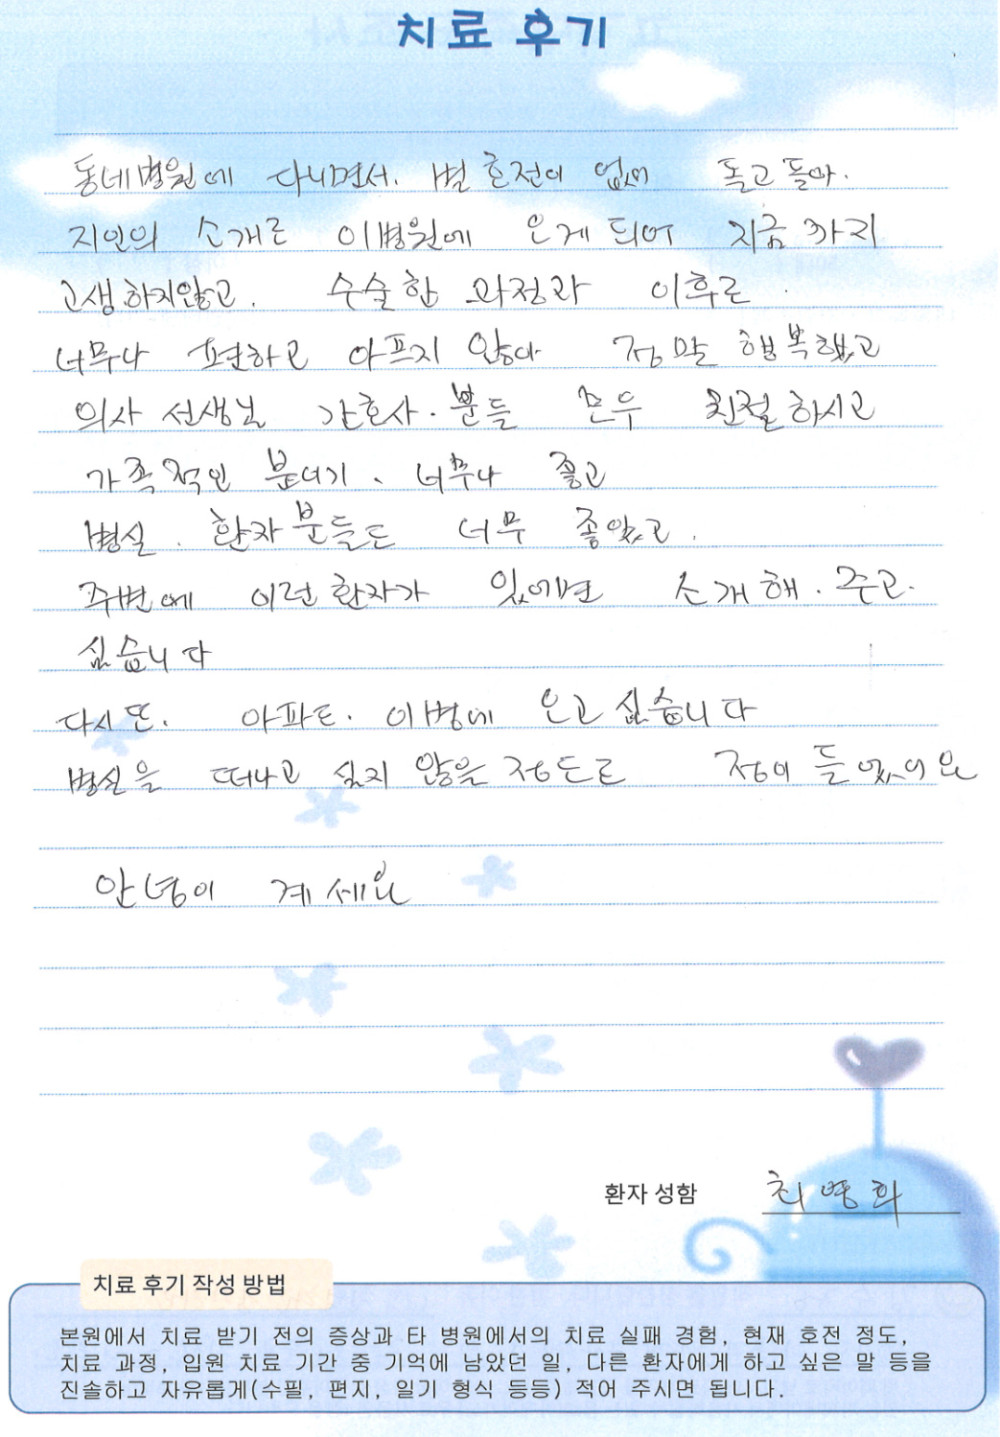 치료 후기
동네병원에 다니면서. 별 호전이 없어 돌고 돌아.
지인의 소개로 이병원에 오게 되어 지금 까지
고생 하지않고. 수술 합 과정과 이후로
너무나 편하고 아프지 않다 정말 행복했고
의사 선생님 간호사. 분들 모두 친절 하시고
가족적인 분너기. 너무나 좋고
병실. 환자 분들도 너무 좋았고.
주변에 이런 환자가 있에면 소개해. 주고.
싶습니다
다시 또. 아파도. 이병에 오고 싶습니다
병실을 떠나고 싶지 않을 정도로 정이 들었어요
안녕이 계세요
환자 성함 최영희
치료 후기 작성 방법
본원에서 치료 받기 전의 증상과 타 병원에서의 치료 실패 경험, 현재 호전 정도,
치료 과정, 입원 치료 기간 중 기억에 남았던 일, 다른 환자에게 하고 싶은 말 등을
진솔하고 자유롭게(수필, 편지, 일기 형식 등등) 적어 주시면 됩니다.